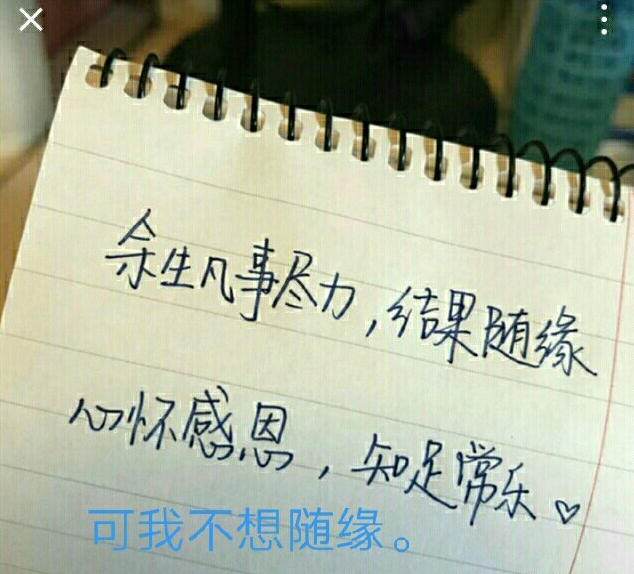 余生凡事尽力，结果随缘
心怀感恩，知足常乐♡
可我不想随缘。